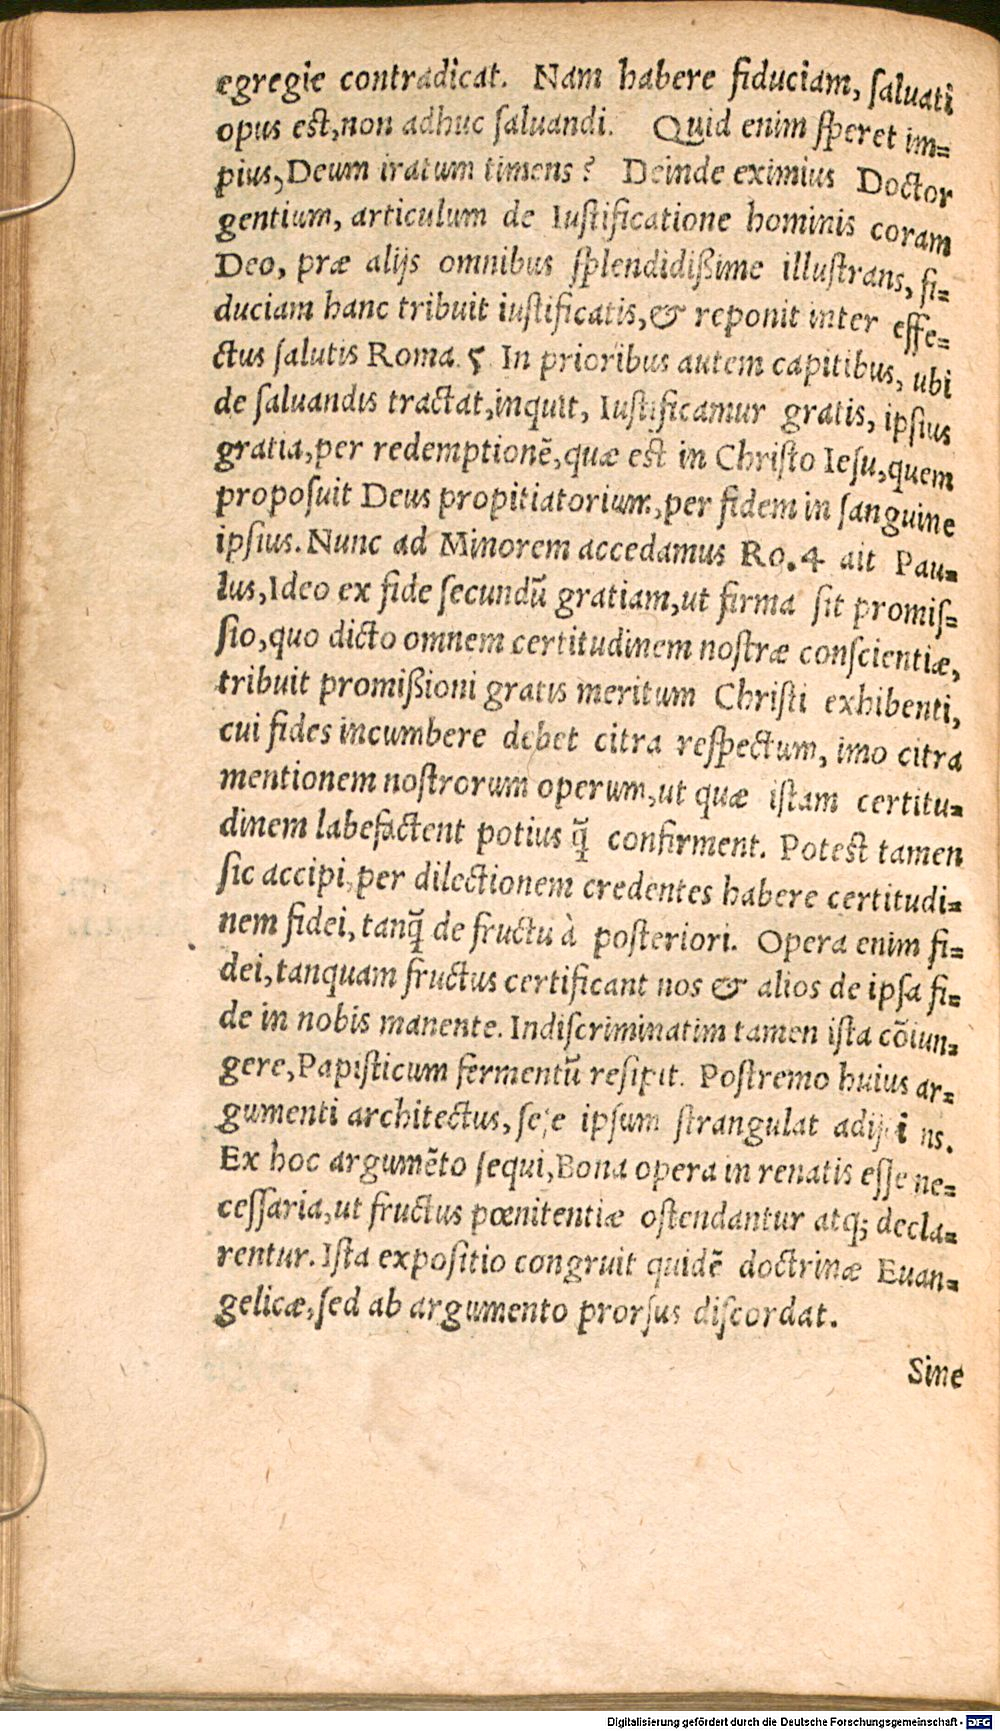 egregie contradicat. Nam habere fiduciam, ſaluati
opus eſt,non adhuc ſaluandi. Quid enim ſperet im=
pius,Deum iratum timens? Deinde eximius Doctor
gentium, articulum de Iuſtificatione hominis coram
Deo, præ alijs omnibus ſplendidißime illuſtrans, fi=
duciam hanc tribuit iuſtificatis,& reponit inter effe=
ctus ſalutis Roma 5 In prioribus autem capitibus, ubi
de ſaluandis tractat,inquit, Iuſtificamur gratis, ipſius
gratia,per redemptionẽ,quæ eſt in Chriſto Ieſu,quem
propoſuit Deus propitiatorium,per fidem in ſanguine
ipſius. Nunc ad Minorem accedamus Ro.4 ait Pau=
lus,Ideo ex fide ſecundũ gratiam,ut firma ſit promiſ=
ſio,quo dicto omnem certitudinem noſtræ conſcientiæ,
tribuit promißioni gratis meritum Chriſti exhibenti,
cui fides incumbere debet citra reſpectum, imo citra
mentionem noſtrorum operum,ut quæ iſtam certitu=
dinem labefactent potius q̃ confirment. Poteſt tamen
ſic accipi,per dilectionem credentes habere certitudi=
nem fidei, tanq̃ de fructu à poſteriori. Opera enim fi=
dei,tanquam fructus certificant nos & alios de ipſa fi=
de in nobis manente. Indiſcriminatim tamen iſta cõiun=
gere,Papiſticum fermentũ reſipit. Poſtremo huius ar=
gumenti architectus, ſeſe ipſum ſtrangulat
Ex hoc argumẽto ſequi,Bona opera in renatis eſſe ne=
ceſſaria,ut fructus pœnitentiæ oſtendantur atq; decla=
rentur. Iſta expoſitio congruit quidẽ doctrinæ Euan=
gelicæ,ſed ab argumento prorſus diſcordat.
Sine
Digitalisierung gefördert durch die Deutsche Forschungsgemeinschaft - DFG